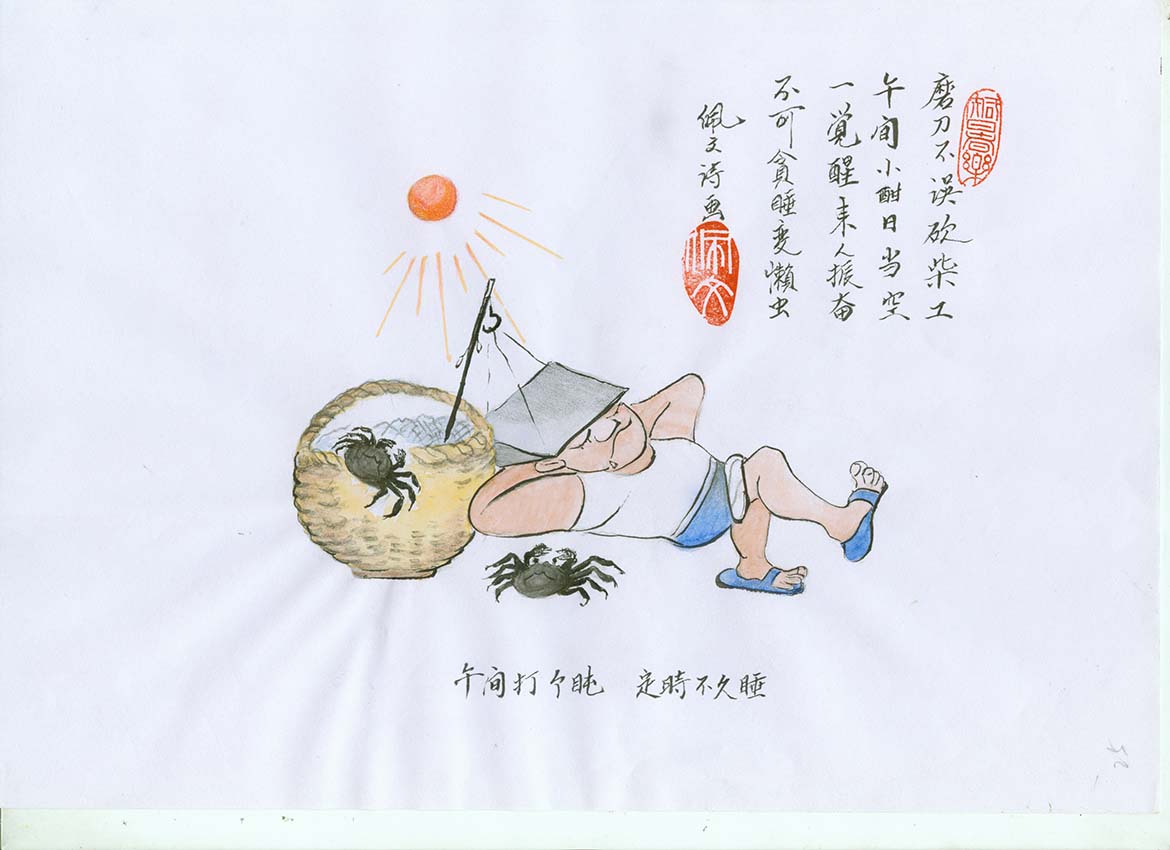 磨刀不误砍柴工
午间小酣日当空
一覚醒来人振奋
不可貪睡变懒虫
佩文诗画
佩文
午间打个盹 定時不久睡